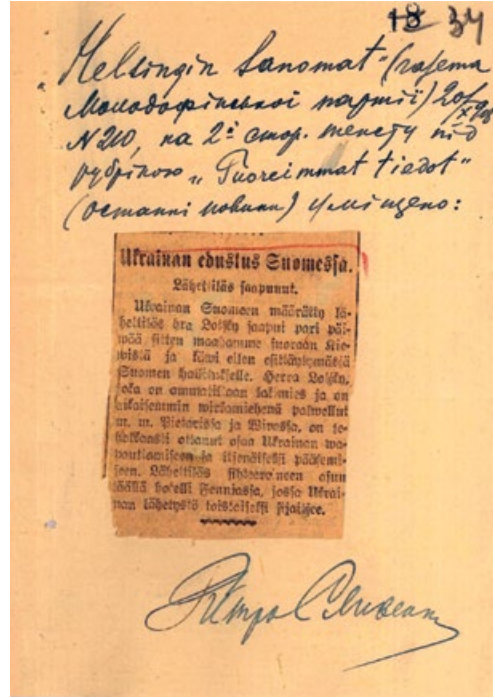 18 34
Helsingin Sanomat" (газета
Молодофінської партії) 20/X 918
N 210, на 2й стор. тексту під
рубрікою „Tuoreimmat tiedot"
(останні новини) уміщено:
Ukrainan edustus Suomessa.
Lähettiläs saapunut.
Ukrainan Suomeen määrätty lä-
hettiläs hra Lotsky saapui pari päi-
wää sitten maahamme suoraan Kie-
wistä ja käwi eilen esittäytymässä
Suomen hallitukselle. Herra Lotsky,
oka on ammatiltaan lakimies ja on
aikaisemmin wirkamiehenä palwellut
m. m. Pietarissa ja Wirossa, on te-
hokkaasti ottanut osaa Ukrainan wa-
pauttamiseen ja itsenäiseksi pääsemi-
seen. Lähettiläs sihteereineen asuu
täällä hotelli Fenniassa, jossa Ukrai-
nan lähetystö toistaiseksi sijaitsee.
Петро